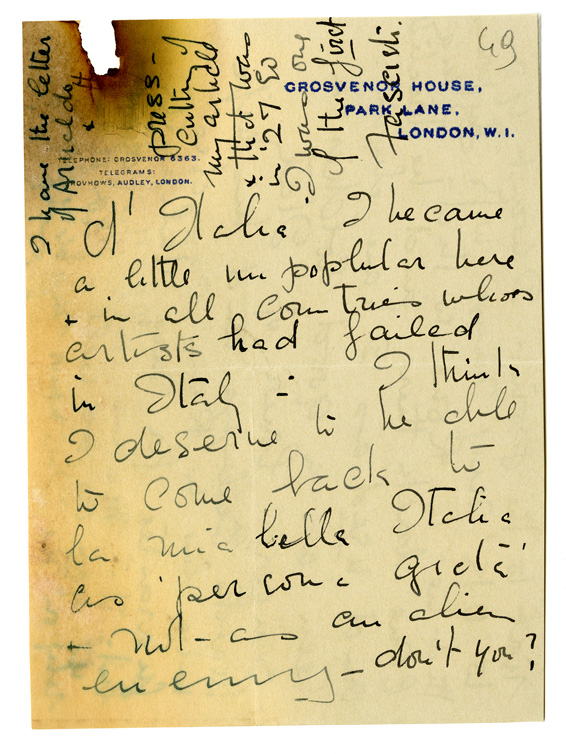 49
GROSVENOR HOUSE,
PARK LANE,
LONDON, W.I.
TELEPHONE: GROSVENOR 6363.
TELEGRAMS:
GROVHOWS, AUDLEY, LONDON.
I have the letter
of Arnaldo
& the
press-
cutting of
my article
& that was
in '27
I was one
of the first
Fascisti.
d'Italia I became
a little un popular here
+ in all countries whoes
artists had failed
in Italy - I think
I deserve to be able
to come back to
la mia bella Italia
as 'persona
+ not - as an alien
enemy - don't you?